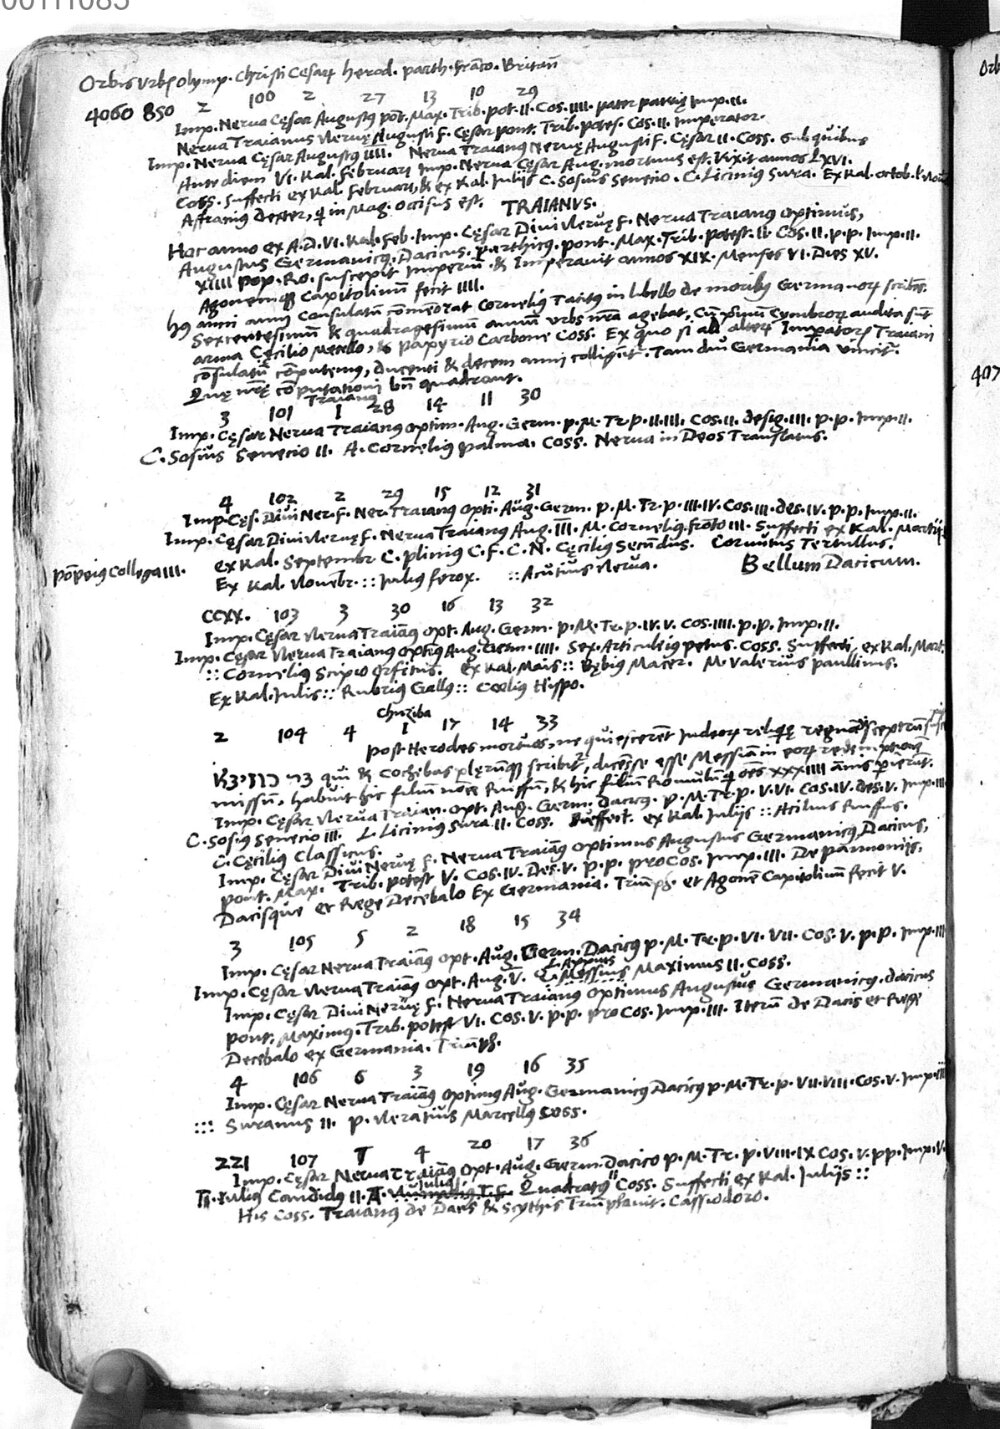 00111085
Orbis Urbis Olymp. Christi Cęsar Herod. Parth. Franco. Britañ
4060 850 2 100 2 27 13 10 29
Imp. Nerva Cęsar Augustꝰ pot. Max. Trib. pot. II. Cos. IIII. pater patrię Imp. II.
Nerva Traianus Nervę Augusti F. Cęsar pont. Trib. potes. Cos. II. Imperator.
Imp. Nerva Cęsar Augustꝰ IIII. Nerva Traianꝰ Nervę Augusti F. Cęsar II. Coss. Sub quibus
Ante diem VI. Kal. Februarĩ Imp. Nerva Cęsar Aug. mortuus est. Vixit annos LXVI.
Coss. Suffecti ex Kal. Februarĩ, & ex Kal. Julijs C. Sosius Senecio. C. Licinius Sura. Ex Kal. octob.
Affranius Dexter, q̃ in Mag. occisus est. TRAIANVS.
Hoc anno ex A. D. VI. Kal. Feb. Imp. Cęsar Divi Nervę F. Nerva Traianꝰ Optimus,
Augustus Germanicꝰ, Dacicus. Parthicꝰ. pont. Max. Trib. potest. II. Cos. II. p. p. Imp. II.
XIIII pop. Ro. suscepit Imperiũ. & Imperavit annos XIX. Menses VI. Dies XV.
Agonemqꝫ Capitolinũ fecit IIII.
Hꝰ anni Consulatũ cõmemorat Cornelius Tacitꝰ in libello de moribꝰ Germanorꝫ scribẽs.
Sexcentesimũ & quadragesimũ annũ urbs nr̃a agebat, cũ primũ Cymbrorꝫ audita sũt
arma Cęcilio Metello, & Papyrio Carbone Coss. Ex quo si ad alterꝫ Imp̃atorꝫ Traiani
cõsulatũ cõputemꝰ, ducenti & decem anni colligũt̃. Tam diu Germania vincit̃.
Quę nr̃ę cõputationi bñ quadrant.
Traianꝰ
3 101 1 28 14 11 30
Imp. Cęsar Nerva Traianus optim. Aug. Germ. p. M. Tr. p. II. III. Cos. II. desig. III. p. p. Imp. II.
C. Sosius Senecio II. A. Cornelius palma. Coss. Nerva in Deos Translatus.
4 102 2 29 15 12 31
Imp. Cęs. Divi Ner. F. Ner. Traianꝰ Opti. Aug. Germ. p. M. Tr. p. III. IV. Cos. III. des. IV. p. p. Imp. II.
Imp. Cęsar Divi Nervę F. Nerva Traianꝰ Aug. III. M. Corneliꝰ. Frõto III. Suffecti ex Kal. Martij
ex Kal. Septembr C. plinius C. F. C. N. Cęcilius Secũdus. Cornutus Tertullus.
põpeiꝰ Collega III.
Ex Kal. Novẽbr. :: Julius ferox. :: Acutius Nerva. Bellum Dacicum.
CCXX. 103 3 30 16 13 32
Imp. Cęsar Nerva Traiãꝰ opt. Aug. Germ. p. M. Tr. p. IV. V. Cos. IIII. p. p. Imp. II.
Imp. Cęsar Nerva Traianꝰ optĩꝰ Aug. Germ. IIII. Sex. Articuleiꝰ petus. Coss. Suffecti, ex Kal. Mart.
:: Cornelius Scipio Orfitus. ex Kal. Mais :: Bębius Macer. M. Valerius paullinus.
Ex Kal. Julis :: Rubrius Gallꝰ :: Cœlius Hispo.
Chuziba
2 104 4 1 17 14 33
post Herodes mortuos, ne quiescerẽt Judeorꝫ reliq̃ę regnũ & sceptrũ
בר כוזיבא qui & Cochibas plerũqꝫ scribit̃, dicẽs se esse Messiam in eorꝫ redemptionẽ
missũ, habuit hic filiũ noĩe Ruffũ, & hic filiũ Romulũ q̃ oẽs XXXIIII annis p̃ierũt.
Imp. Cęsar Nerva Traian. opt. Aug. Germ. dacicꝰ. p. M. Tr. p. V. VI. Cos. IV. des. V. Imp. III
C. Sosiꝰ Senecio III. L. Licinius Sura. II. Coss. Suffect. ex Kal. Julijs :: Acilius Ruffus.
C. Cęcilius Classicus.
Imp. Cęsar Divi Nervę F. Nerva Traiãꝰ Optimus Augustus Germanicꝰ, Dacicus,
pont. Max. Trib. potest V. Cos. IV. Des. V. p. p. proCos. Imp. III. De pannonijs,
Dacisque et Rege Decebalo Ex Germania. Triũph. et Agonẽ Capitolinũ fecit V.
3 105 5 2 18 15 34
Imp. Cęsar Nerva Traiãꝰ opt. Aug. Germ. Dacicꝰ p. M. Tr. p. VI. VII. Cos. V. p. p. Imp. III
L. Appius
Imp. Cęsar Nerva Traiãꝰ opt. Aug. V. Messius Maximus II. Coss.
Imp. Cęsar Divi Nervę F. Nerva Traiãꝰ Optimus Augustus Germanicꝰ, dacicus
pont. Maximꝰ. Trib. potest VI. Cos. V. p. p. proCos. Imp. III. Iterũ de Dacis et Rege
Decebalo ex Germania. Triũph.
4 106 6 3 19 16 35
Imp. Cęsar Nerva Traiãꝰ Optimꝰ Aug. Germanicꝰ Dacicꝰ p. M. Tr. p. VII. VIII. Cos. V. Imp. III
::: Suranus II. P. Neratius Marcellꝰ Coss.
221 107 7 4 20 17 36
Imp. Cęsar Nerva Traiãꝰ Opt. Aug. Germ. Dacico p. M. Tr. p. VIII. IX Cos. V. pp. Imp. IV.
Julius
Ti. Juliꝰ Candidꝰ II. A. Quadratꝰ II Coss. Suffecti ex Kal. Julijs ::
His Coss. Traianꝰ de Dacis & Scythis Triũphavit. Cassiodoro.
Orb
407